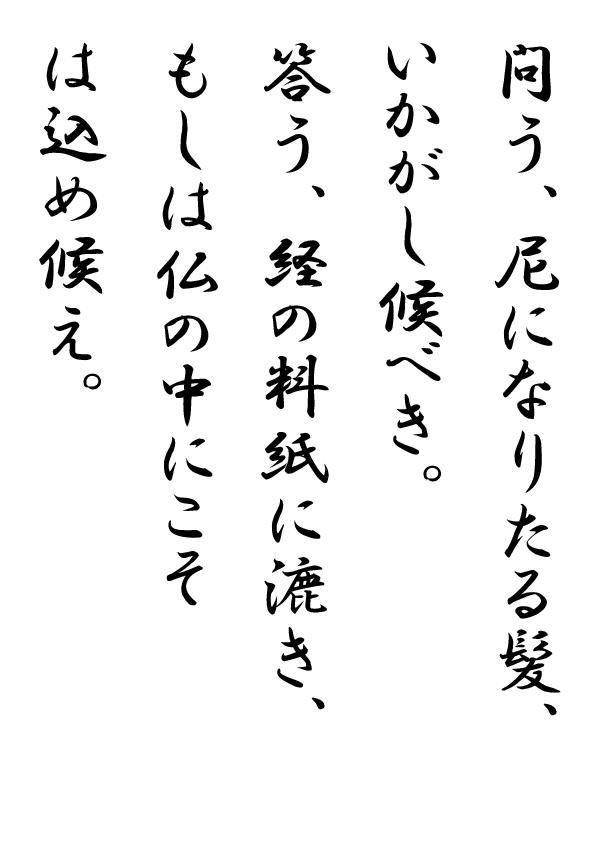 問う、尼になりたる髪、
いかがし候べき。
答う、経の料紙に漉き、
もしは仏の中にこそ
は込め候え。